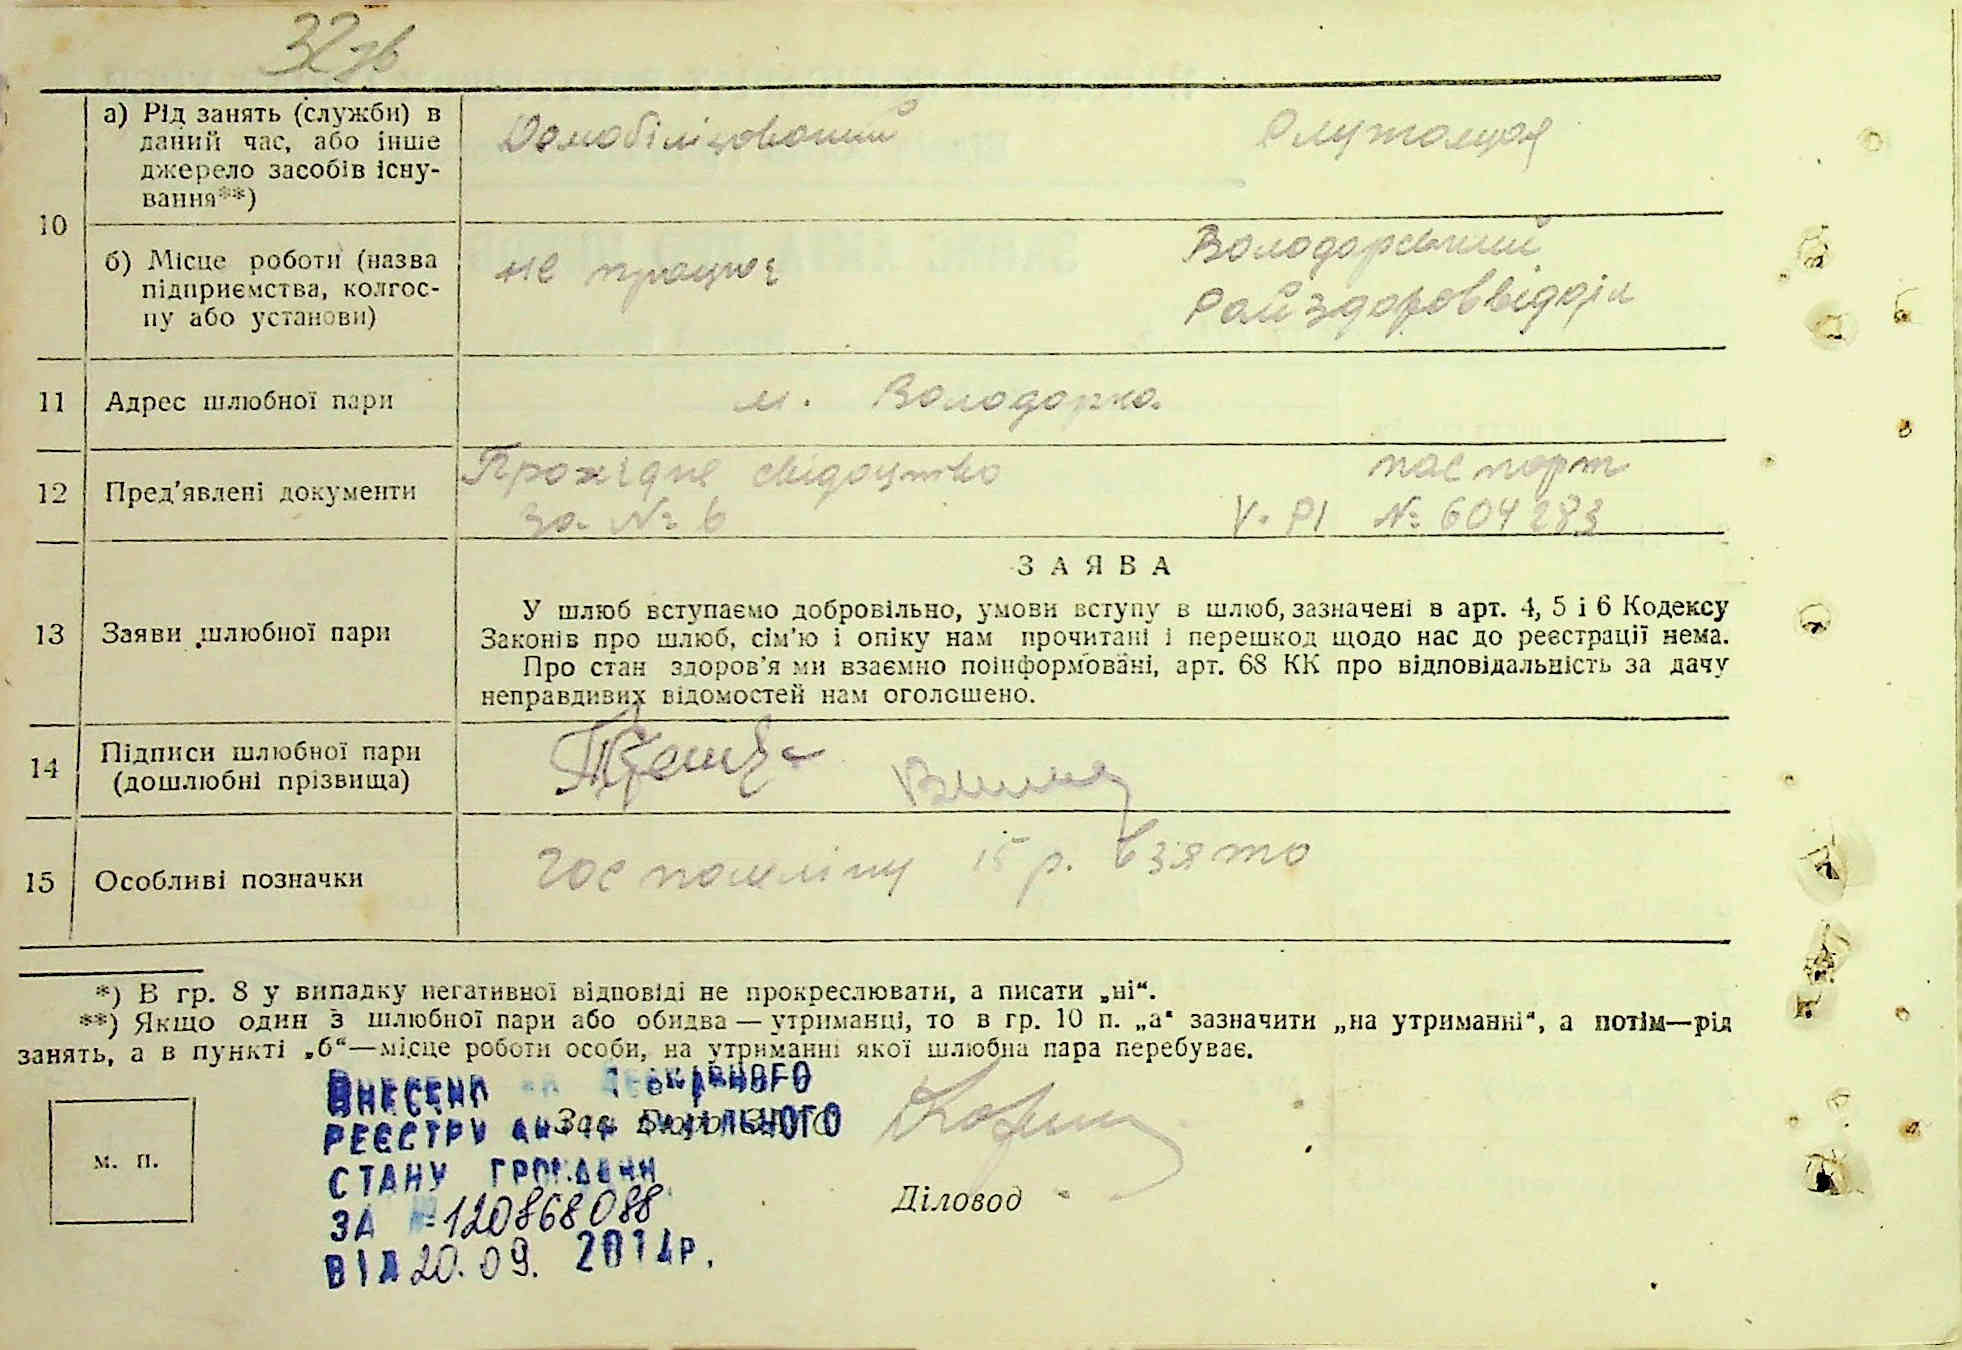 32 зв
а) Рід занять (служби) в
даний час, або інше
джерело засобів існу-
вання**)
Домобілізований
Служащая
10
б) Місце роботи (назва
підприємства, колгос-
пу або установи)
не працює
Володарський
Райздороввідділ
11 Адрес шлюбної пари
м. Володарка
12 Пред'явлені документи
Прохідне свідоцтво
за № 6
паспорт
№ 604283
13 Заяви шлюбної пари
ЗАЯВА
У шлюб вступаємо добровільно, умови вступу в шлюб, зазначені в арт. 4, 5 і 6 Кодексу
Законів про шлюб, сім'ю і опіку нам прочитані і перешкод щодо нас до реєстрації нема.
Про стан здоров'я ми взаємно поінформовані, арт. 68 КК про відповідальність за дачу
неправдивих відомостей нам оголошено.
14 Підписи шлюбної пари
(дошлюбні прізвища)
15 Особливі позначки
Гос пошліну 15 р. взято
*) В гр. 8 у випадку негативної відповіді не прокреслювати, а писати „ні“.
**) Якщо один з шлюбної пари або обидва — утриманці, то в гр. 10 п. „а“ зазначити „на утриманні“, а потім—рід
занять, а в пункті „б“—місце роботи особи, на утриманні якої шлюбна пара перебуває.
ВНЕСЕНО ДО ДЕРЖАВНОГО
РЕЄСТРУ АКТІВ ЦИВІЛЬНОГО
Зав. Бюро ЗАГС
СТАНУ ГРОМАДЯН
ЗА № 120868088
ВІД 20.09. 2011р.
м. п.
Діловод